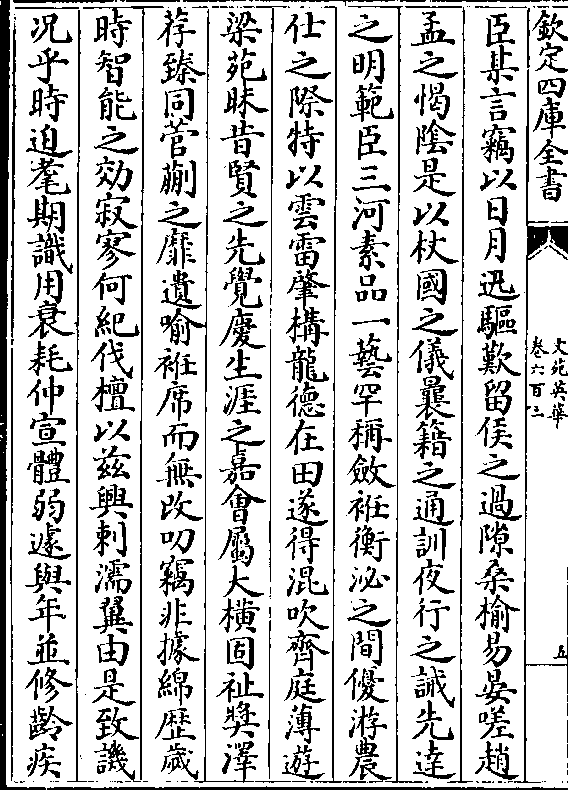 欽定四庫全書
文苑英華
卷六百三
五
臣某言竊以日月迅驅歎留侯之過隙桑榆易晏嗟趙
孟之愒陰是以杖國之儀曩籍之通訓夜行之誡先達
之明範臣三河素品一藝罕稱斂袵衡泌之間優游農
仕之際特以雲雷肇構龍德在田遂得混吹齊庭薄遊
梁苑昧昔賢之先覺慶生涯之嘉會屬大橫固祉奬澤
荐臻同菅蒯之靡遺喻袵席而無改叨竊非據綿歷歲
時智能之効寂寥何紀伐檀以兹興刺濡翼由是致譏
况乎時迫耄期識用衰耗仲宣體弱遽與年並修齡疾